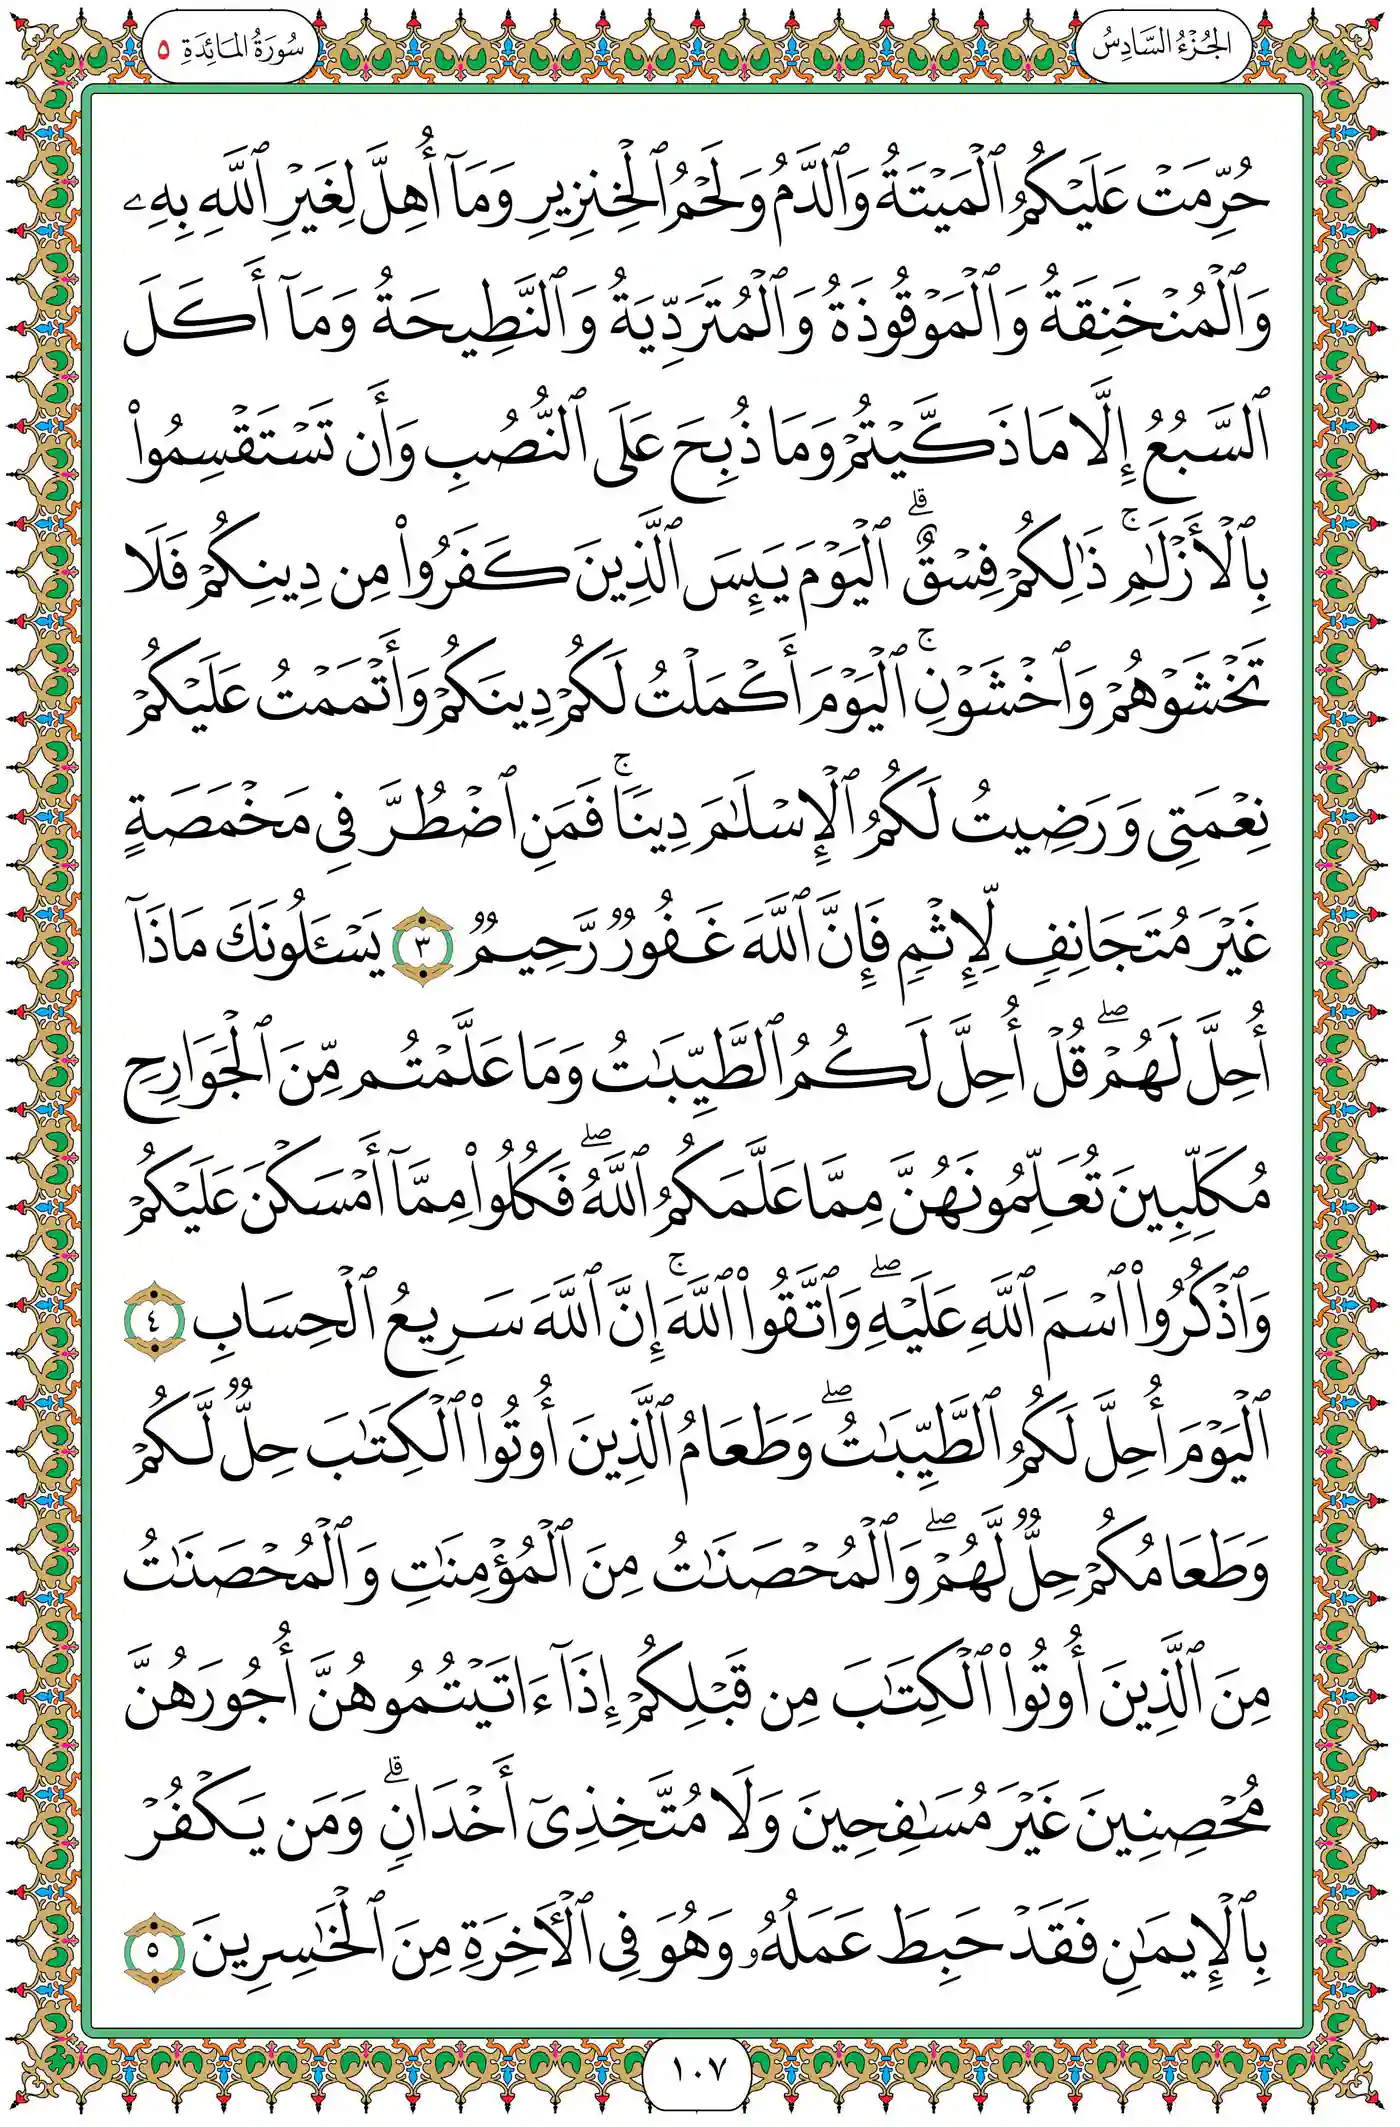 الجُزْءُ السَّادِسُ
سُورَةُ المَائِدَةِ ٥
حُرِّمَتْ عَلَيْكُمُ ٱلْمَيْتَةُ وَٱلدَّمُ وَلَحْمُ ٱلْخِنزِيرِ وَمَآ أُهِلَّ لِغَيْرِ ٱللَّهِ بِهِۦ
وَٱلْمُنْخَنِقَةُ وَٱلْمَوْقُوذَةُ وَٱلْمُتَرَدِّيَةُ وَٱلنَّطِيحَةُ وَمَآ أَكَلَ
ٱلسَّبُعُ إِلَّا مَا ذَكَّيْتُمْ وَمَا ذُبِحَ عَلَى ٱلنُّصُبِ وَأَن تَسْتَقْسِمُوا۟
بِٱلْأَزْلَـٰمِ ۚ ذَٰلِكُمْ فِسْقٌ ۗ ٱلْيَوْمَ يَئِسَ ٱلَّذِينَ كَفَرُوا۟ مِن دِينِكُمْ فَلَا
تَخْشَوْهُمْ وَٱخْشَوْنِ ۚ ٱلْيَوْمَ أَكْمَلْتُ لَكُمْ دِينَكُمْ وَأَتْمَمْتُ عَلَيْكُمْ
نِعْمَتِى وَرَضِيتُ لَكُمُ ٱلْإِسْلَـٰمَ دِينًا ۚ فَمَنِ ٱضْطُرَّ فِى مَخْمَصَةٍ
غَيْرَ مُتَجَانِفٍ لِّإِثْمٍ فَإِنَّ ٱللَّهَ غَفُورٌ رَّحِيمٌ ٣ يَسْـَٔلُونَكَ مَاذَآ
أُحِلَّ لَهُمْ ۖ قُلْ أُحِلَّ لَكُمُ ٱلطَّيِّبَـٰتُ وَمَا عَلَّمْتُم مِّنَ ٱلْجَوَارِحِ
مُكَلِّبِينَ تُعَلِّمُونَهُنَّ مِمَّا عَلَّمَكُمُ ٱللَّهُ ۖ فَكُلُوا۟ مِمَّآ أَمْسَكْنَ عَلَيْكُمْ
وَٱذْكُرُوا۟ ٱسْمَ ٱللَّهِ عَلَيْهِ ۖ وَٱتَّقُوا۟ ٱللَّهَ ۚ إِنَّ ٱللَّهَ سَرِيعُ ٱلْحِسَابِ ٤
ٱلْيَوْمَ أُحِلَّ لَكُمُ ٱلطَّيِّبَـٰتُ ۖ وَطَعَامُ ٱلَّذِينَ أُوتُوا۟ ٱلْكِتَـٰبَ حِلٌّ لَّكُمْ
وَطَعَامُكُمْ حِلٌّ لَّهُمْ ۖ وَٱلْمُحْصَنَـٰتُ مِنَ ٱلْمُؤْمِنَـٰتِ وَٱلْمُحْصَنَـٰتُ
مِنَ ٱلَّذِينَ أُوتُوا۟ ٱلْكِتَـٰبَ مِن قَبْلِكُمْ إِذَآ ءَاتَيْتُمُوهُنَّ أُجُورَهُنَّ
مُحْصِنِينَ غَيْرَ مُسَـٰفِحِينَ وَلَا مُتَّخِذِىٓ أَخْدَانٍ ۗ وَمَن يَكْفُرْ
بِٱلْإِيمَـٰنِ فَقَدْ حَبِطَ عَمَلُهُۥ وَهُوَ فِى ٱلْـَٔاخِرَةِ مِنَ ٱلْخَـٰسِرِينَ ٥
١٠٧